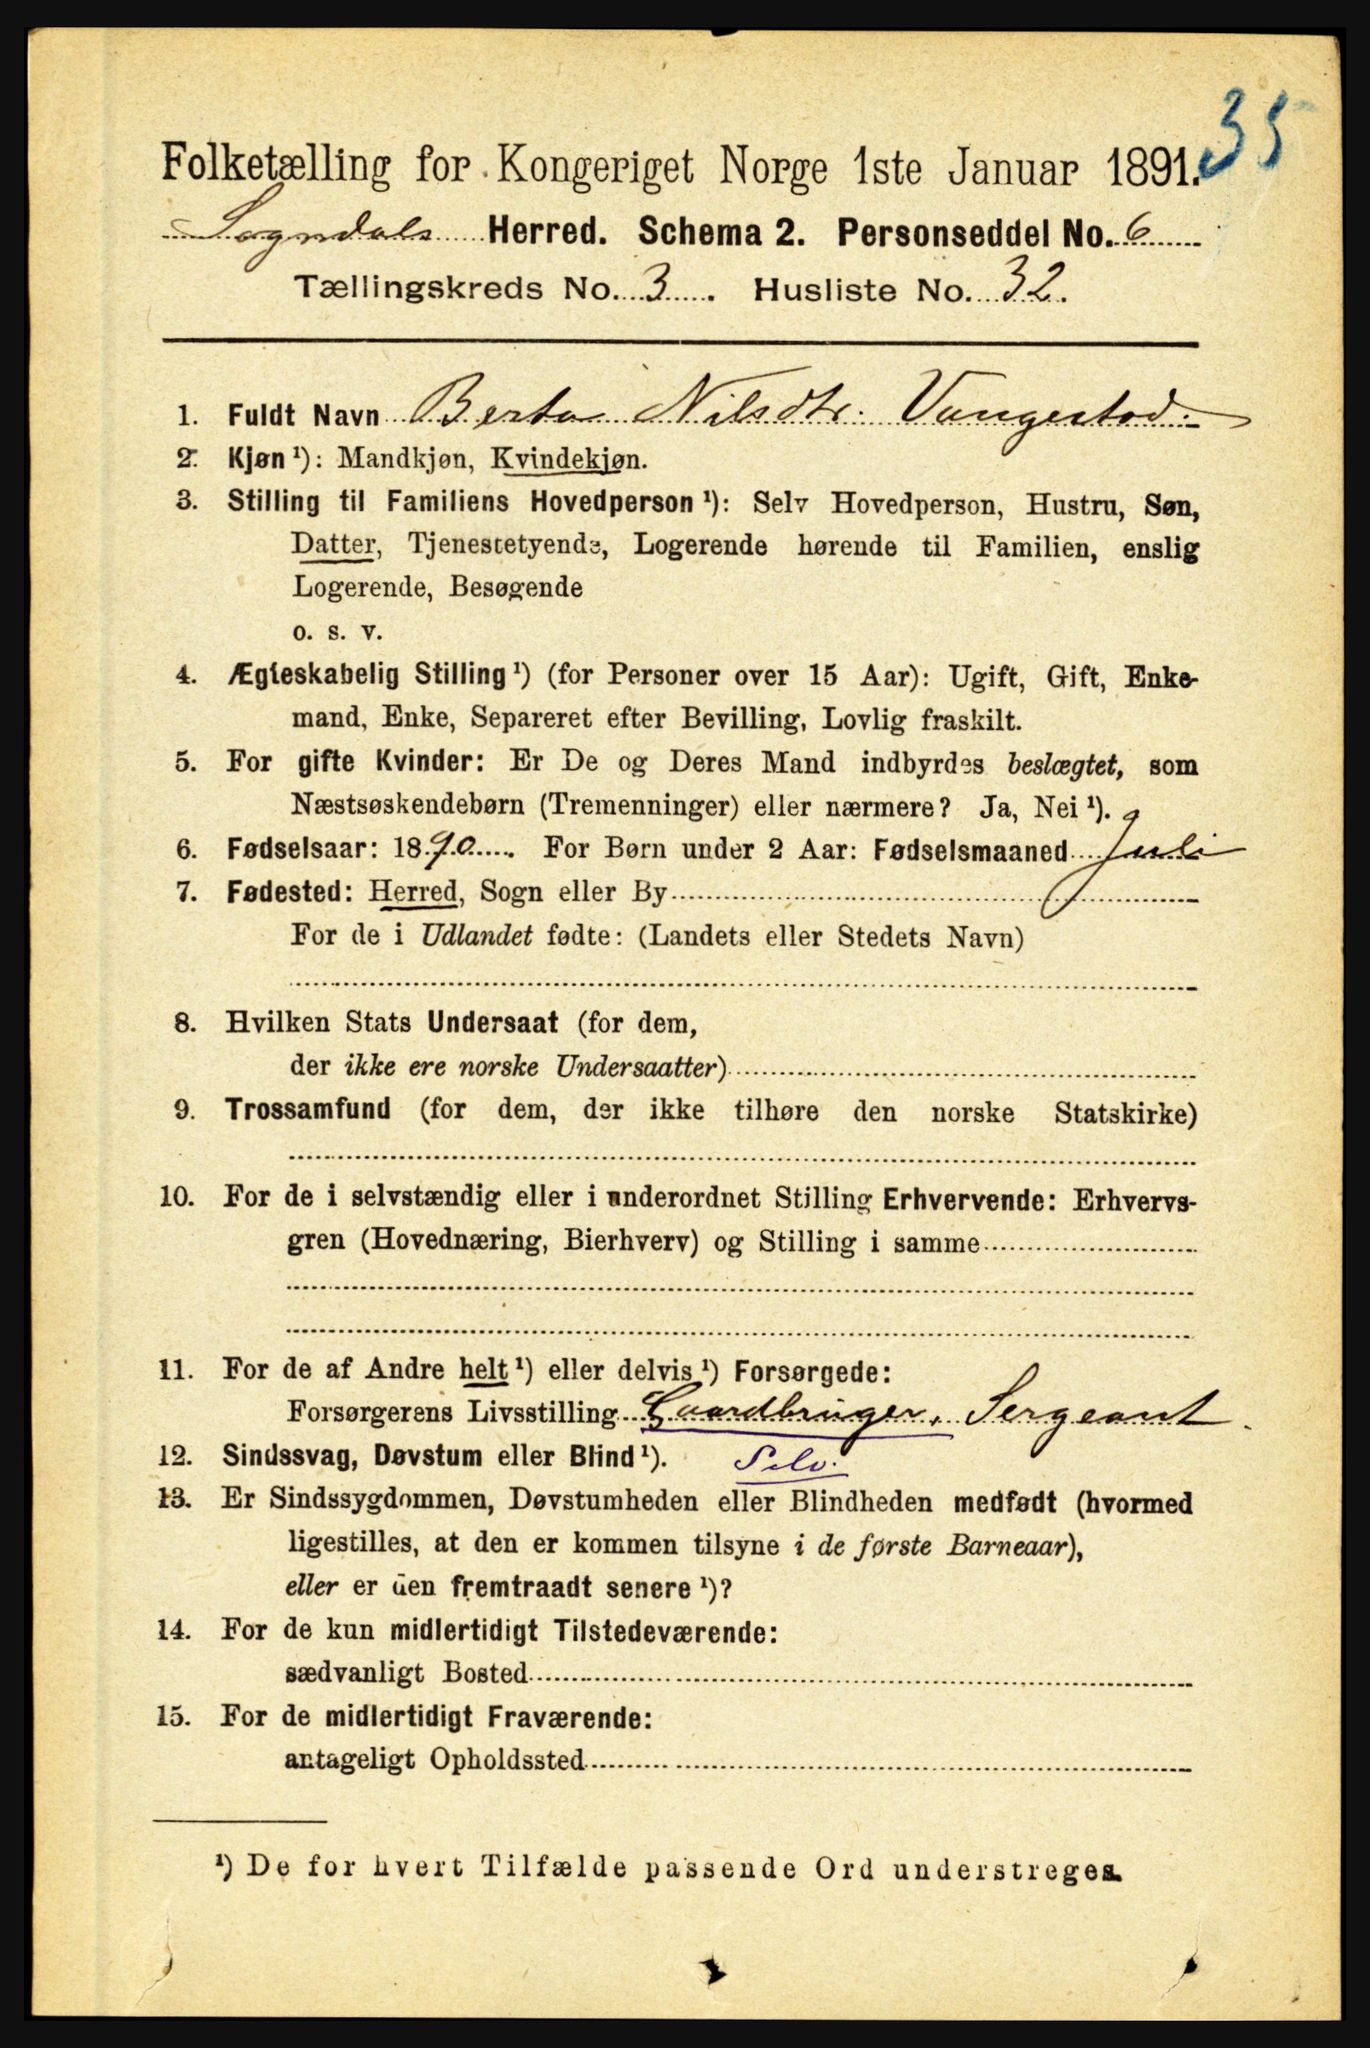 35
Folketælling for Kongeriget Norge 1ste Januar 1891.
Sogndals Herred. Schema 2. Personseddel No. 6
Tællingskreds No. 3. Husliste No. 32.
1. Fuldt Navn Berta Nilsdtr. Vangestad.
2. Kjøn ¹): Mandkjøn, Kvindekjøn.
3. Stilling til Familiens Hovedperson ¹): Selv Hovedperson, Hustru, Søn,
Datter, Tjenestetyende, Logerende hørende til Familien, enslig
Logerende, Besøgende
o. s. v.
4. Ægteskabelig Stilling ¹) (for Personer over 15 Aar): Ugift, Gift, Enke-
mand, Enke, Separeret efter Bevilling, Lovlig fraskilt.
5. For gifte Kvinder: Er De og Deres Mand indbyrdes beslægtet, som
Næstsøskendebørn (Tremenninger) eller nærmere? Ja, Nei ¹).
6. Fødselsaar: 1890. For Børn under 2 Aar: Fødselsmaaned Juli
7. Fødested: Herred, Sogn eller By
For de i Udlandet fødte: (Landets eller Stedets Navn)
8. Hvilken Stats Undersaat (for dem,
der ikke ere norske Undersaatter)
9. Trossamfund (for dem, der ikke tilhøre den norske Statskirke)
10. For de i selvstændig eller i underordnet Stilling Erhvervende: Erhvervs-
gren (Hovednæring, Bierhverv) og Stilling i samme
11. For de af Andre helt ¹) eller delvis ¹) Forsørgede:
Forsørgerens Livsstilling Gaardbruger, Sergeant.
12. Sindssvag, Døvstum eller Blind ¹). Selv.
13. Er Sindssygdommen, Døvstumheden eller Blindheden medfødt (hvormed
ligestilles, at den er kommen tilsyne i de første Barneaar),
eller er den fremtraadt senere ¹)?
14. For de kun midlertidigt Tilstedeværende:
sædvanligt Bosted
15. For de midlertidigt Fraværende:
antageligt Opholdssted
¹) De for hvert Tilfælde passende Ord understreges.